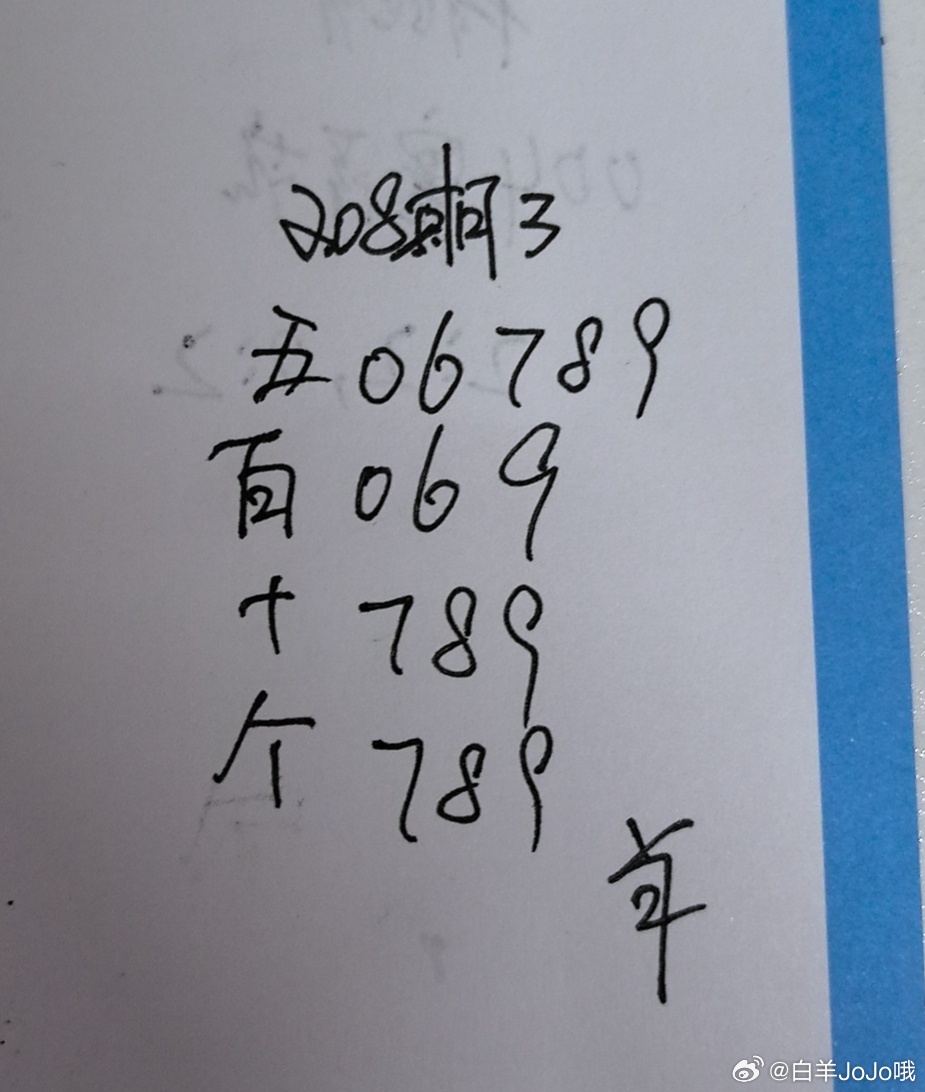 208期3
五06789
百069
十789
个789
@白羊JoJo哦